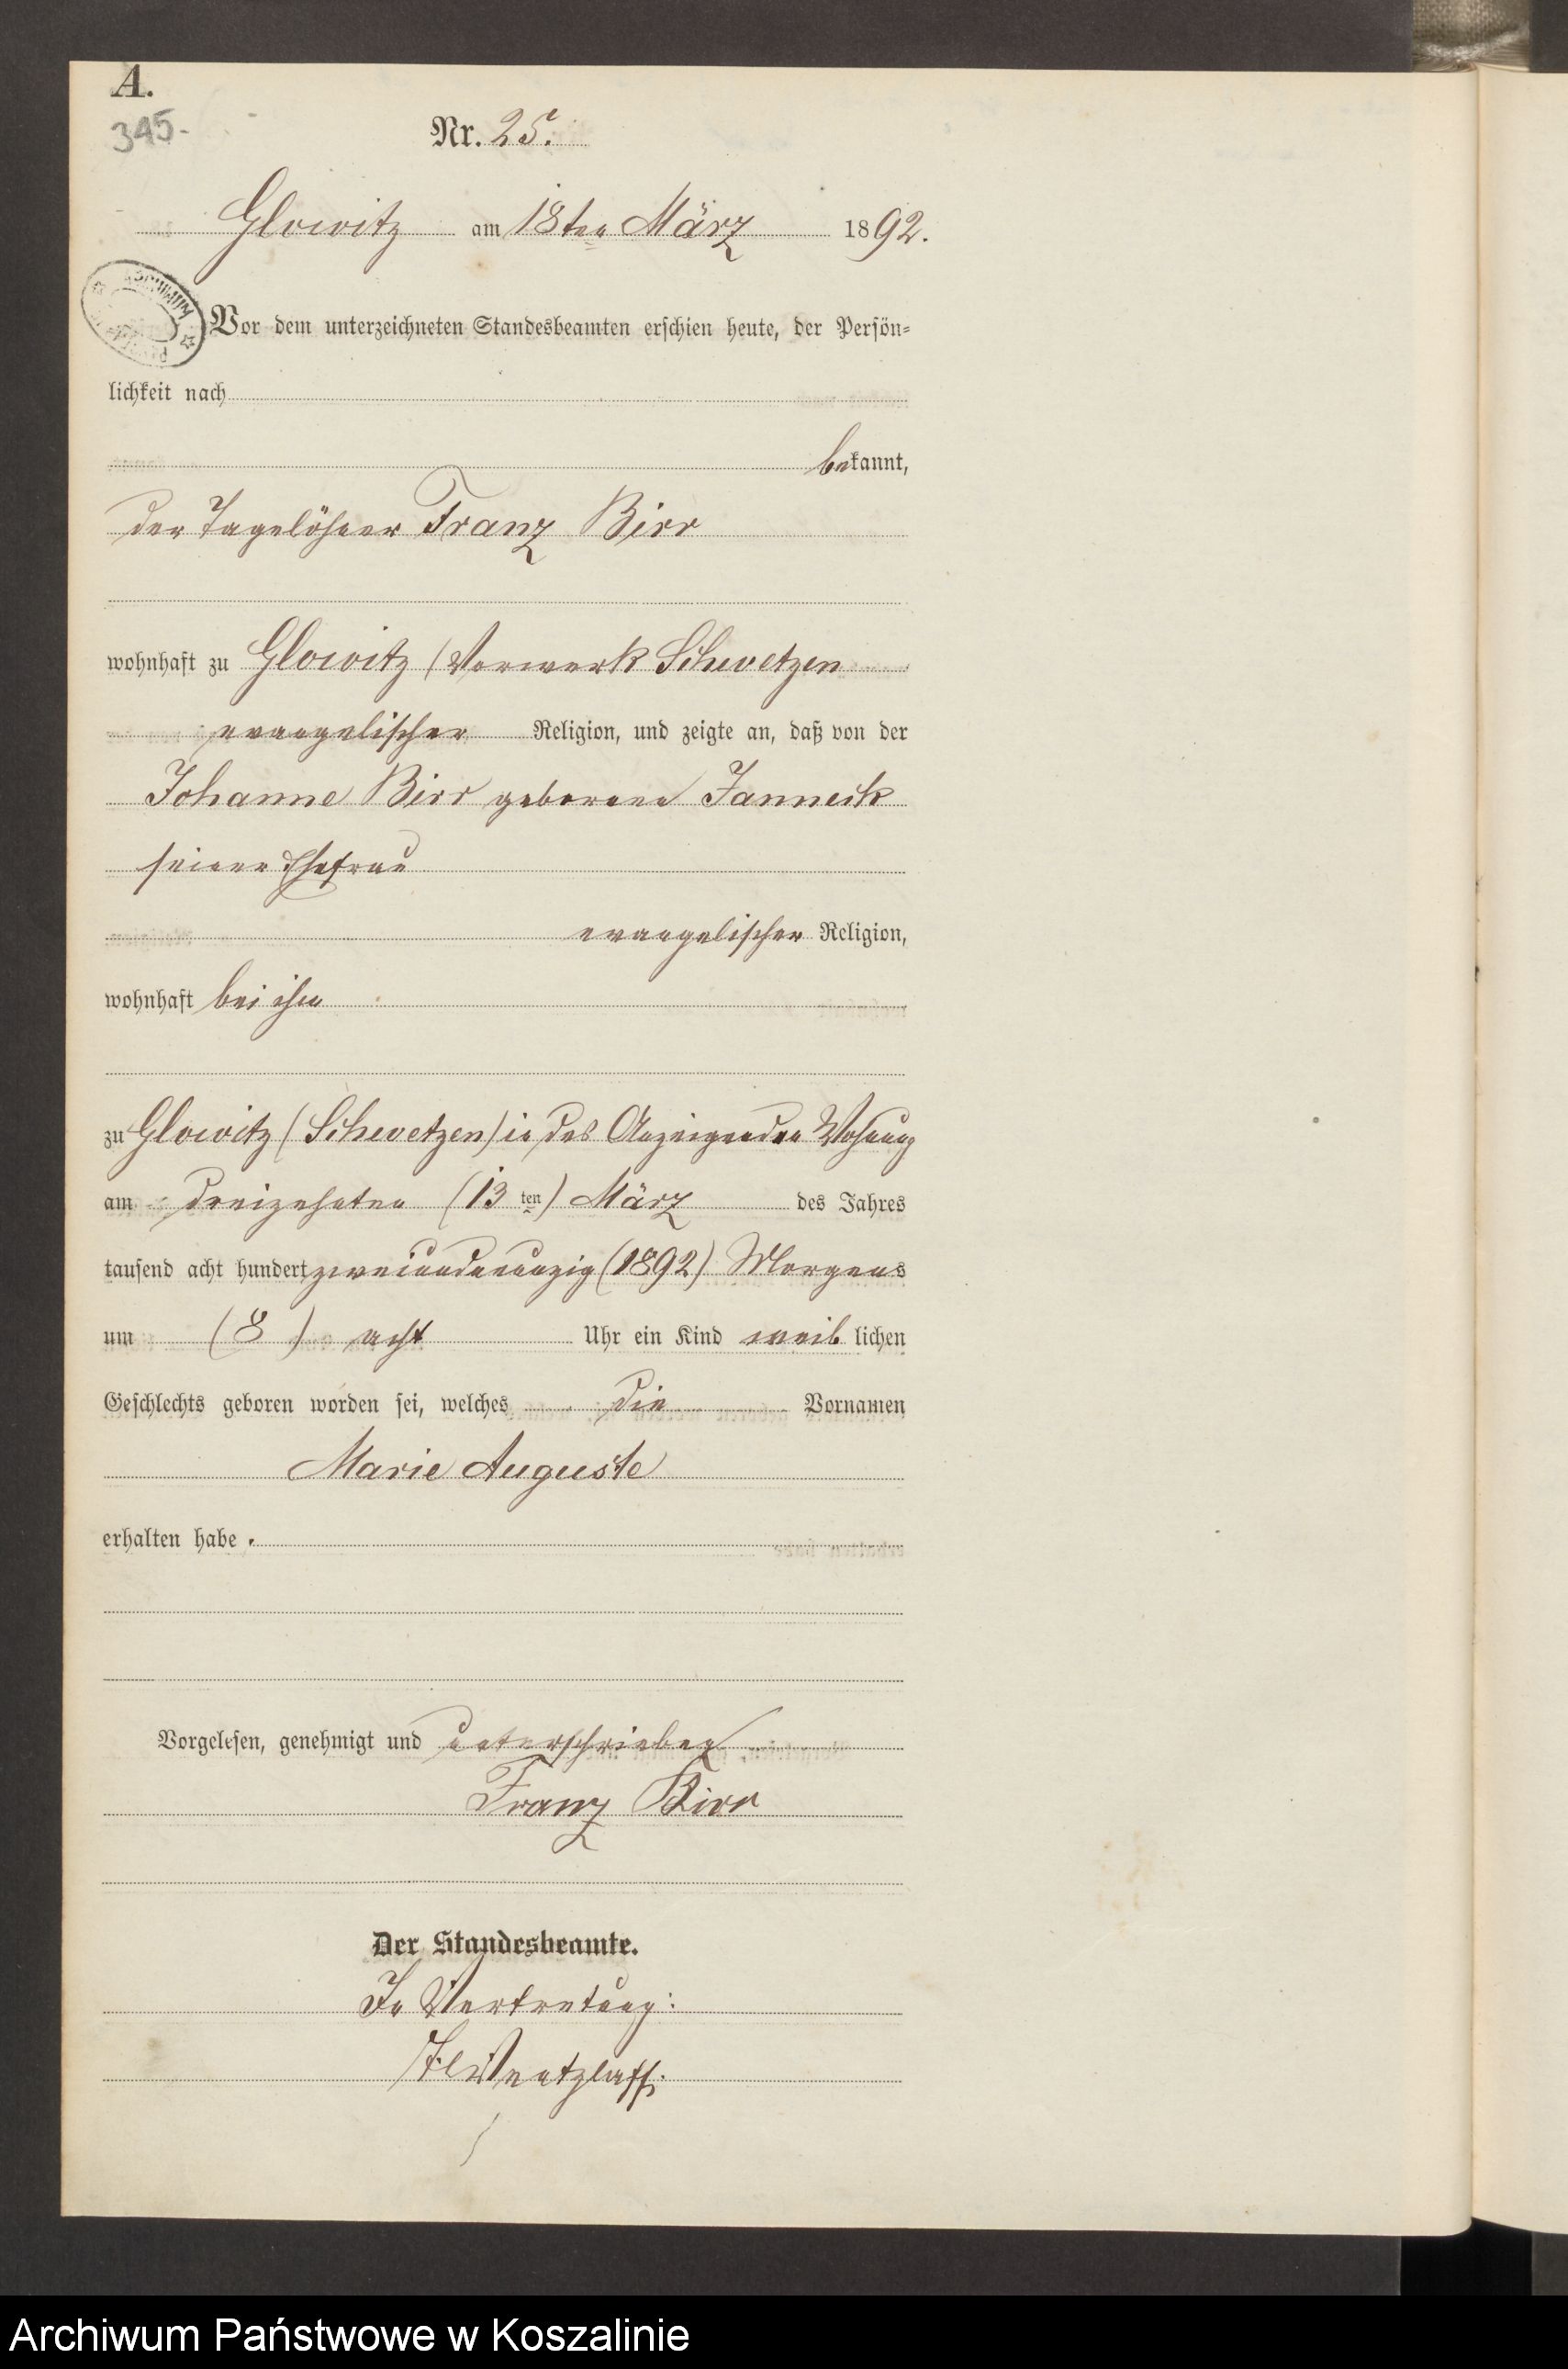 A.
345-
Nr. 25.
Glowitz am 18ten März 1892.
ARCHIWUM
Vor dem unterzeichneten Standesbeamten erschien heute, der Persön-
lichkeit nach
bekannt,
der Tagelöhner Franz Birr
wohnhaft zu Glowitz (Vorwerk Schwetzen
evangelischer Religion, und zeigte an, daß von der
Johanne Birr geborene Janneck
seiner Ehefrau
evangelischer Religion,
wohnhaft bei ihm
zu Glowitz (Schwetzen) in des Anzeigenden Wohnung
am dreizehnten (13ten) März des Jahres
tausend acht hundert zweiundneunzig (1892) Morgens
um (8) acht Uhr ein Kind weiblichen
Geschlechts geboren worden sei, welches die Vornamen
Marie Auguste
erhalten habe.
Vorgelesen, genehmigt und unterschrieben
Franz Birr
Der Standesbeamte.
In Vertretung:
Wentzlaff.
Archiwum Państwowe w Koszalinie